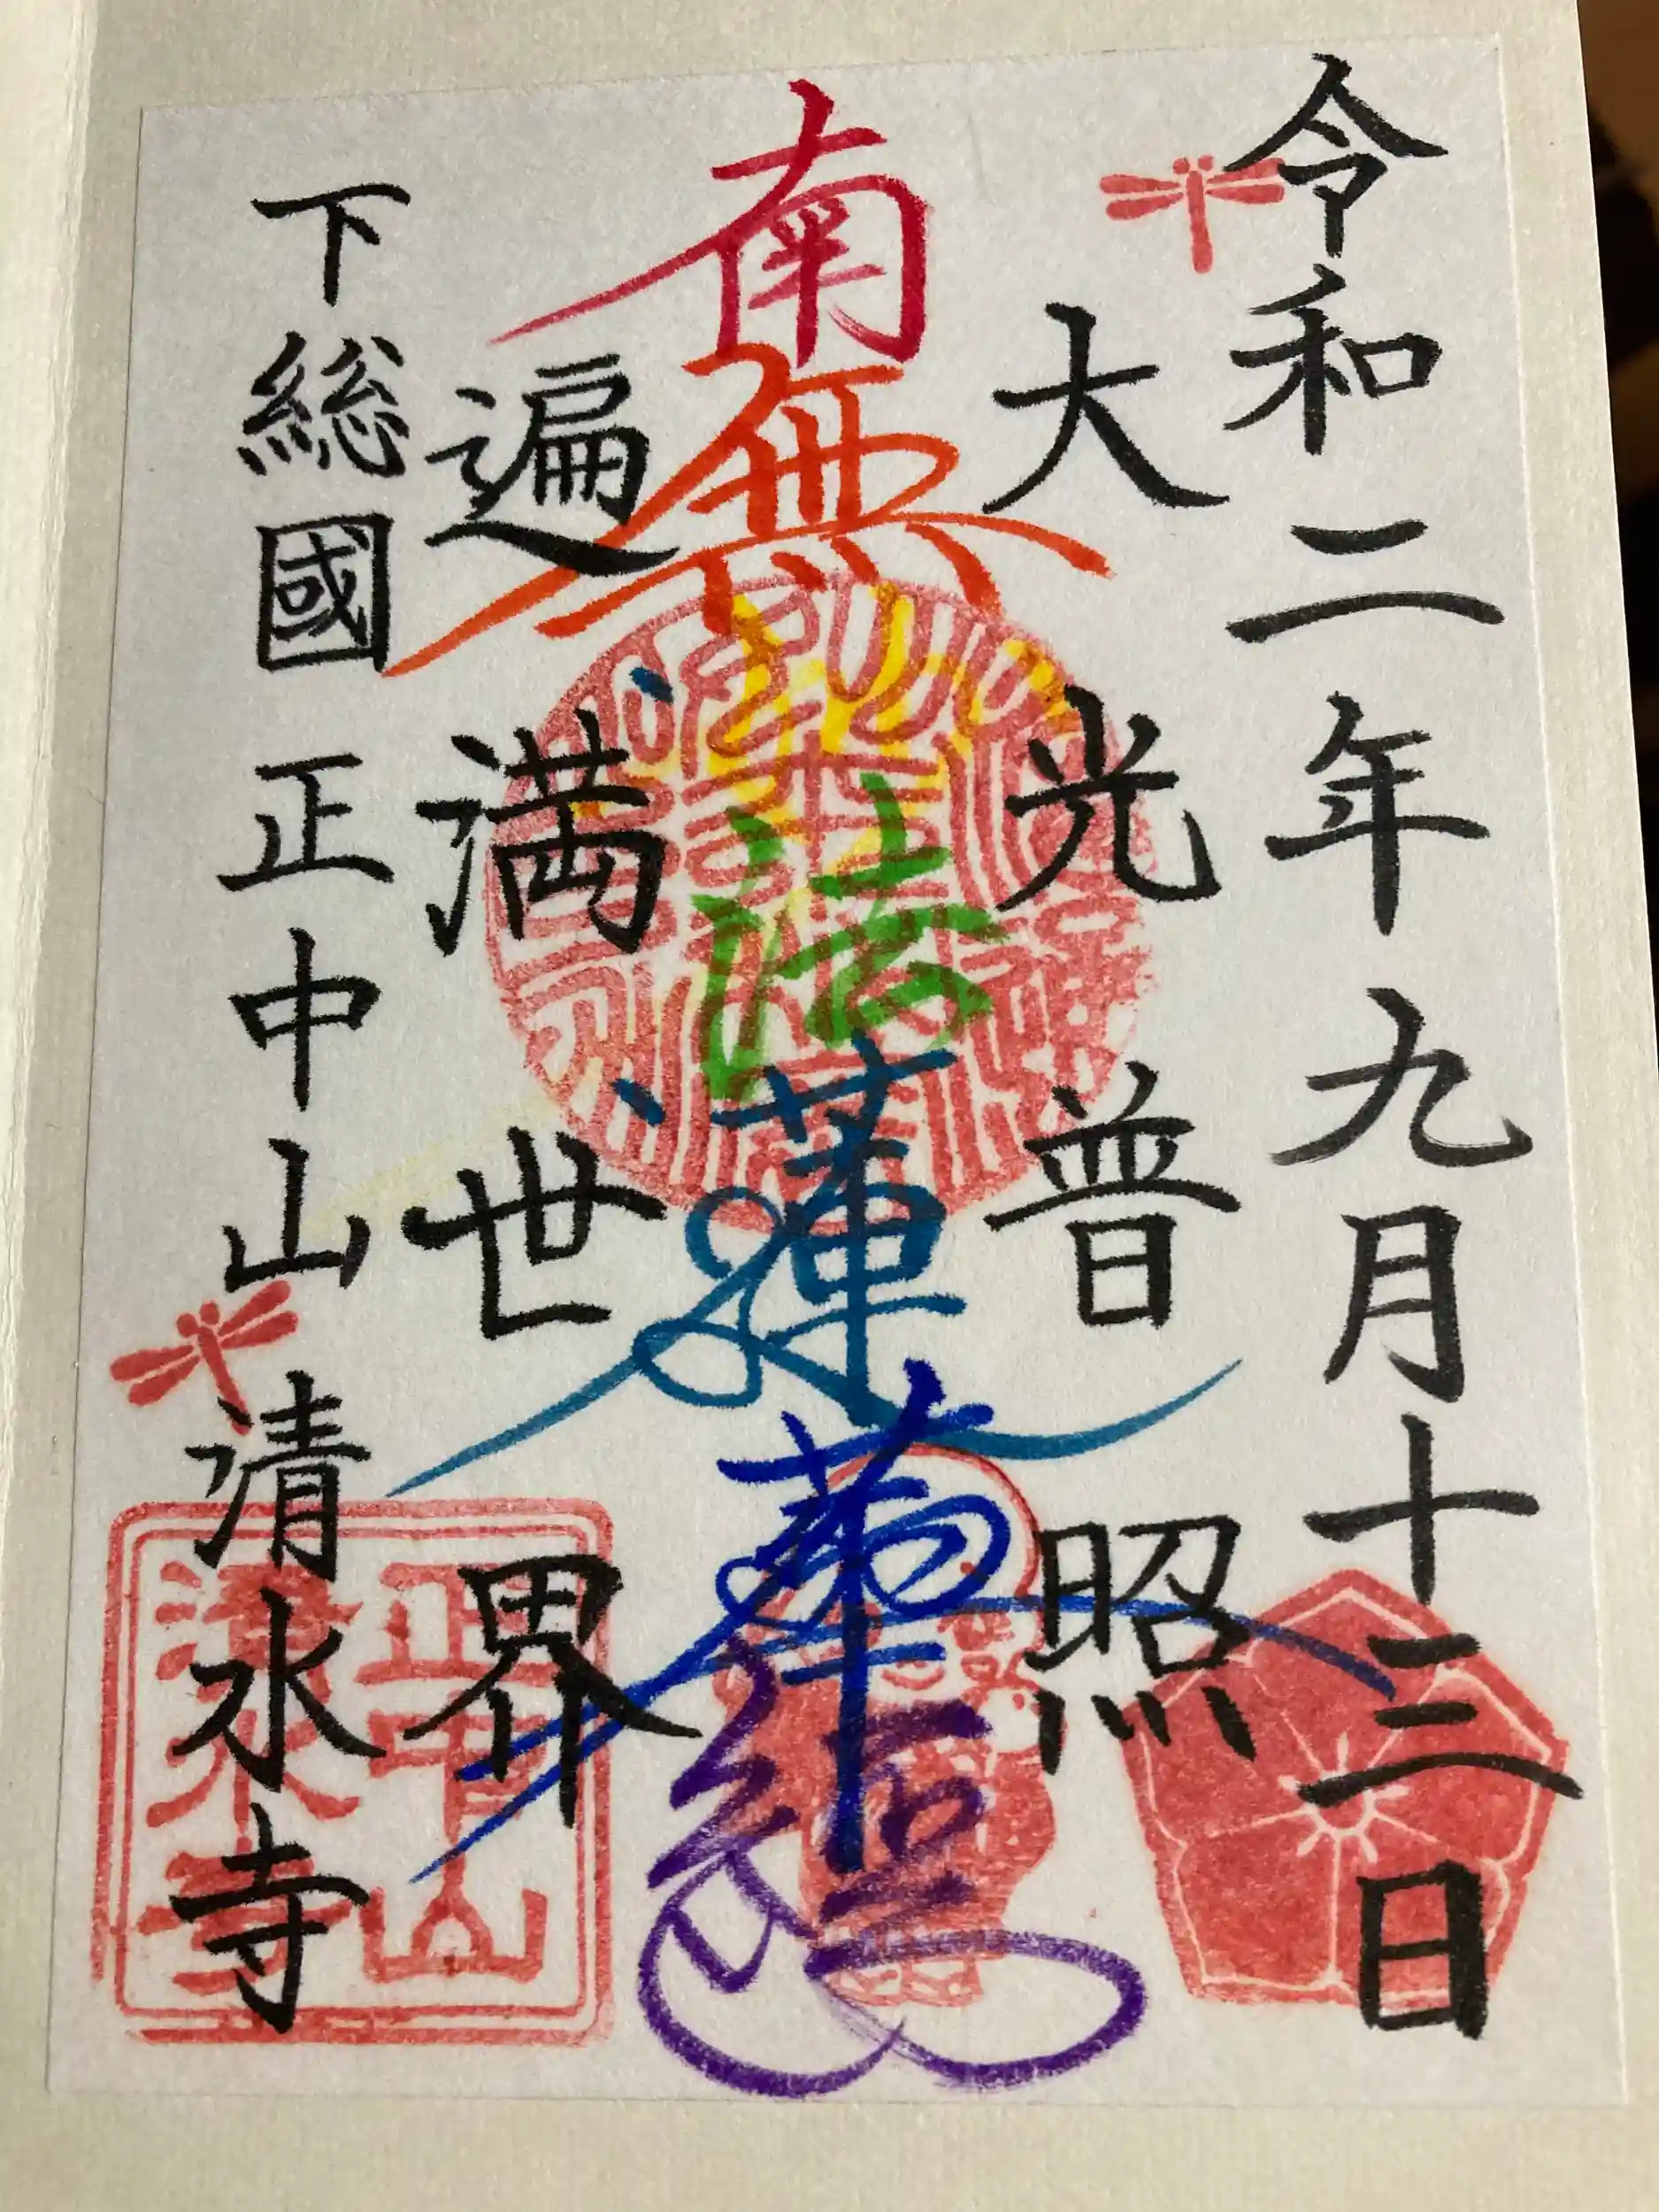 令和二年九月十三日
大光普照
南無妙法蓮華経
遍満世界
下総國正中山清水寺
正中山
清水寺